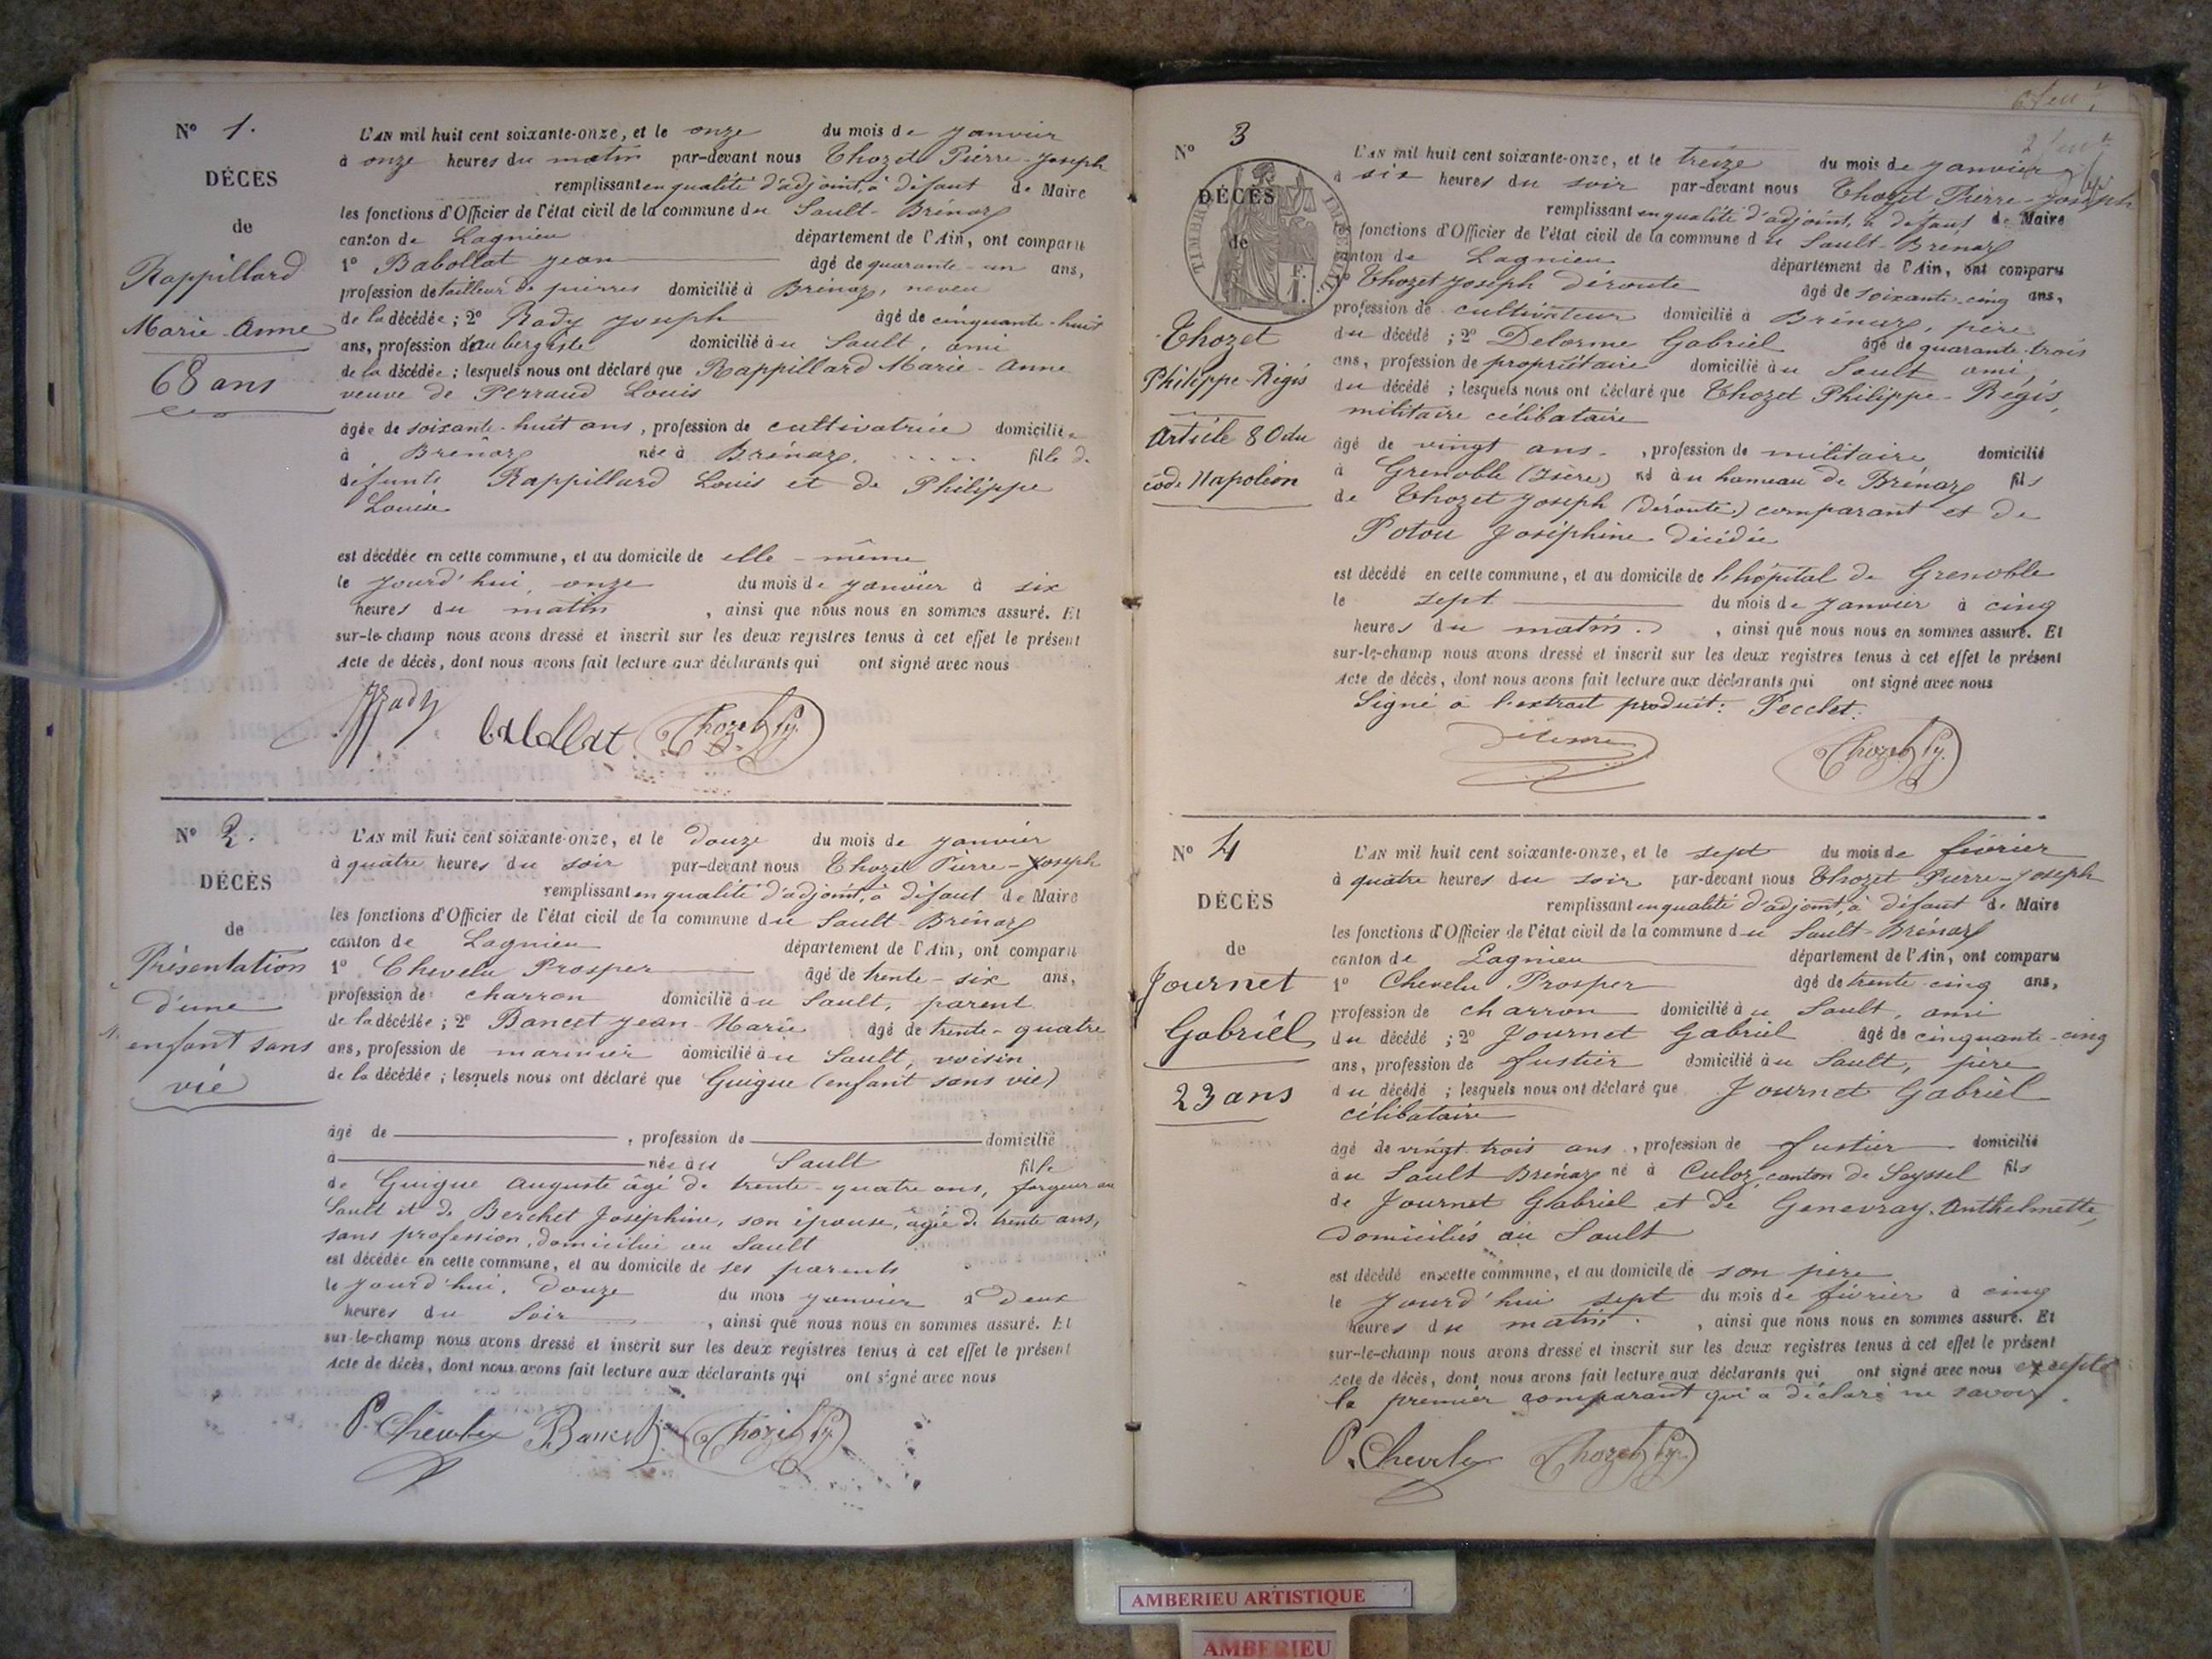 N° 1.
DÉCÈS
de
Rappillard
Marie-Anne
68 ans
L'AN mil huit cent soixante-onze, et le onze du mois de Janvier
à onze heures du matin par-devant nous Thozet Pierre-Joseph
remplissant en qualité d'adjoint, à défaut de Maire
les fonctions d'Officier de l'état civil de la commune du Sault-Brénaz
canton de Lagnieu département de l'Ain, ont comparu
1° Babollat Jean âgé de quarante-un ans,
profession de tailleur de pierres domicilié à Brénaz, neveu
de la décédée ; 2° Rady Joseph âgé de cinquante-huit
ans, profession d'aubergiste domicilié au Sault, ami
de la décédée ; lesquels nous ont déclaré que Rappillard Marie-Anne
veuve de Perraud Louis
âgée de soixante-huit ans, profession de cultivatrice domiciliée
à Brénaz née à Brénaz. fille de
défunts Rappillard Louis et de Philippe
Louise
est décédée en cette commune, et au domicile de elle-même
le Jourd'hui, onze du mois de Janvier à six
heures du matin, ainsi que nous nous en sommes assuré. Et
sur-le-champ nous avons dressé et inscrit sur les deux registres tenus à cet effet le présent
Acte de décès, dont nous avons fait lecture aux déclarants qui ont signé avec nous
Rady babollat Thozet Py.
N° 2.
DÉCÈS
de
Présentation
d'une
enfant sans
vie
L'AN mil huit cent soixante-onze, et le douze du mois de Janvier
à quatre heures du soir par-devant nous Thozet Pierre-Joseph
remplissant en qualité d'adjoint, à défaut de Maire
les fonctions d'Officier de l'état civil de la commune du Sault-Brénaz
canton de Lagnieu département de l'Ain, ont comparu
1° Chevelu Prosper âgé de trente-six ans,
profession de charron domicilié au Sault, parent
de la décédée ; 2° Bancet Jean-Marie âgé de trente-quatre
ans, profession de marinier domicilié au Sault, voisin
de la décédée ; lesquels nous ont déclaré que Guigue (enfant sans vie)
âgé de , profession de domicilié
à née au Sault fille
de Guigue Auguste âgé de trente-quatre ans, forgeur au
Sault et de Berchet Joséphine, son épouse, âgée de trente ans,
sans profession, domiciliée au Sault
est décédée en cette commune, et au domicile de ses parents
le Jourd'hui, Douze du mois Janvier à Deux
heures du Soir, ainsi que nous nous en sommes assuré. Et
sur-le-champ nous avons dressé et inscrit sur les deux registres tenus à cet effet le présent
Acte de décès, dont nous avons fait lecture aux déclarants qui ont signé avec nous
P. Chevelu Bancet Thozet Py.
N° 3
DÉCÈS
de
TIMBRE IMPÉRIAL
Thozet
Philippe-Régis
Article 80 du
code Napoléon
L'AN mil huit cent soixante-onze, et le treize du mois de Janvier
à six heures du soir par-devant nous Thozet Pierre-Joseph
remplissant en qualité d'adjoint, à défaut de Maire
les fonctions d'Officier de l'état civil de la commune du Sault-Brénaz
canton de Lagnieu département de l'Ain, ont comparu
1° Thozet Joseph déroute âgé de soixante-cinq ans,
profession de cultivateur domicilié à Brénaz, père
du décédé ; 2° Delorme Gabriel âgé de quarante-trois
ans, profession de propriétaire domicilié au Sault ami,
du décédé ; lesquels nous ont déclaré que Thozet Philippe-Régis,
militaire célibataire
âgé de vingt ans, profession de militaire domicilié
à Grenoble (Isère) né au hameau de Brénaz fils
de Thozet Joseph (déroute) comparant et de
Potou Joséphine décédée
est décédé en cette commune, et au domicile de l'hôpital de Grenoble
le sept du mois de Janvier à cinq
heures du matin., ainsi que nous nous en sommes assuré. Et
sur-le-champ nous avons dressé et inscrit sur les deux registres tenus à cet effet le présent
Acte de décès, dont nous avons fait lecture aux déclarants qui ont signé avec nous
Signé à l'extrait produit: Pecclet.
Delorme Thozet Py.
N° 4
DÉCÈS
de
Journet
Gabriel
23 ans
L'AN mil huit cent soixante-onze, et le sept du mois de février
à quatre heures du soir par-devant nous Thozet Pierre-Joseph
remplissant en qualité d'adjoint, à défaut de Maire
les fonctions d'Officier de l'état civil de la commune du Sault-Brénaz
canton de Lagnieu département de l'Ain, ont comparu
1° Chevelu Prosper âgé de trente-cinq ans,
profession de charron domicilié au Sault, ami
du décédé ; 2° Journet Gabriel âgé de cinquante-cinq
ans, profession de fustier domicilié au Sault, père
du décédé ; lesquels nous ont déclaré que Journet Gabriel
célibataire
âgé de vingt-trois ans, profession de fustier domicilié
au Sault Brénaz né à Culoz, canton de Seyssel fils
de Journet Gabriel et de Genevray Anthelmette,
domiciliés au Sault
est décédé en cette commune, et au domicile de son père
le Jourd'hui sept du mois de février à cinq
heures du matin, ainsi que nous nous en sommes assuré. Et
sur-le-champ nous avons dressé et inscrit sur les deux registres tenus à cet effet le présent
Acte de décès, dont nous avons fait lecture aux déclarants qui ont signé avec nous excepté
le premier comparant qui a déclaré ne savoir.
P. Chevelu Thozet Py.
AMBERIEU ARTISTIQUE
AMBERIEU